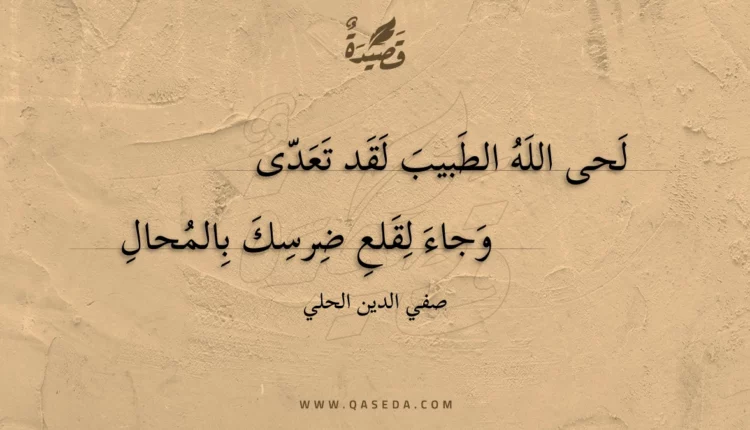 قَصِيدَةٌ
لَحى اللَهُ الطَبيبَ لَقَد تَعَدّى
وَجاءَ لِقَلعِ ضِرسِكَ بِالمُحالِ
صفي الدين الحلي
WWW.QASEDA.COM